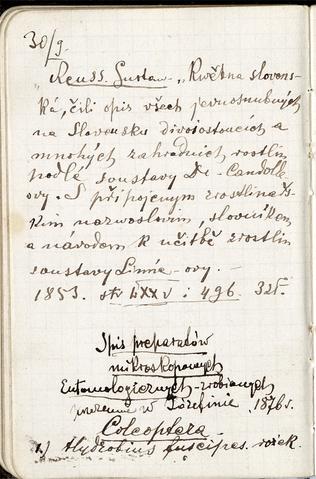 30/9.
Reuss. Gustaw. „Kwětna slovens-
ká, čili opis všech jevnosnubných
na Slovensku divorostoucích a
mnohých zahradních rostlin
podlé soustavy De-Candolle
ovy. S připojeným
slovníkem
a návodem k učitbě rostlin
soustavy Linné-ovy.
1853. str LXXV i 496.
Spis preparatów
mikroskopowych
Entomologicznych-zrobionych
w Józefinie 1876 r.
Coleoptera.
1) Hydrobius fuscipes.